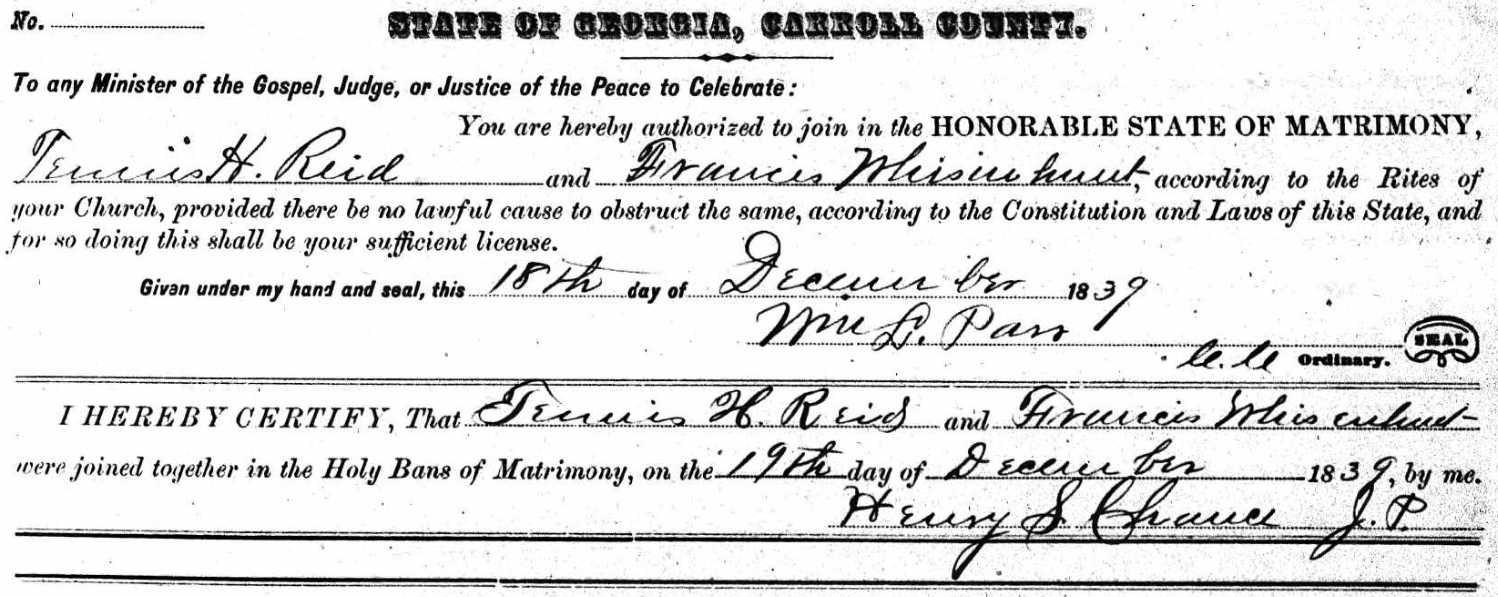 No.
STATE OF GEORGIA, CARROLL COUNTY.
To any Minister of the Gospel, Judge, or Justice of the Peace to Celebrate:
You are hereby authorized to join in the HONORABLE STATE OF MATRIMONY,
Tennis H. Reid and Francis Whisenhunt, according to the Rites of
your Church, provided there be no lawful cause to obstruct the same, according to the Constitution and Laws of this State, and
for so doing this shall be your sufficient license.
Given under my hand and seal, this 18th day of December 1839
Wm L. Parr
C.C. Ordinary. SEAL
I HEREBY CERTIFY, That Tennis H. Reid and Francis Whisenhunt
were joined together in the Holy Bans of Matrimony, on the 19th day of December 1839, by me.
Henry S. Chance J.P.